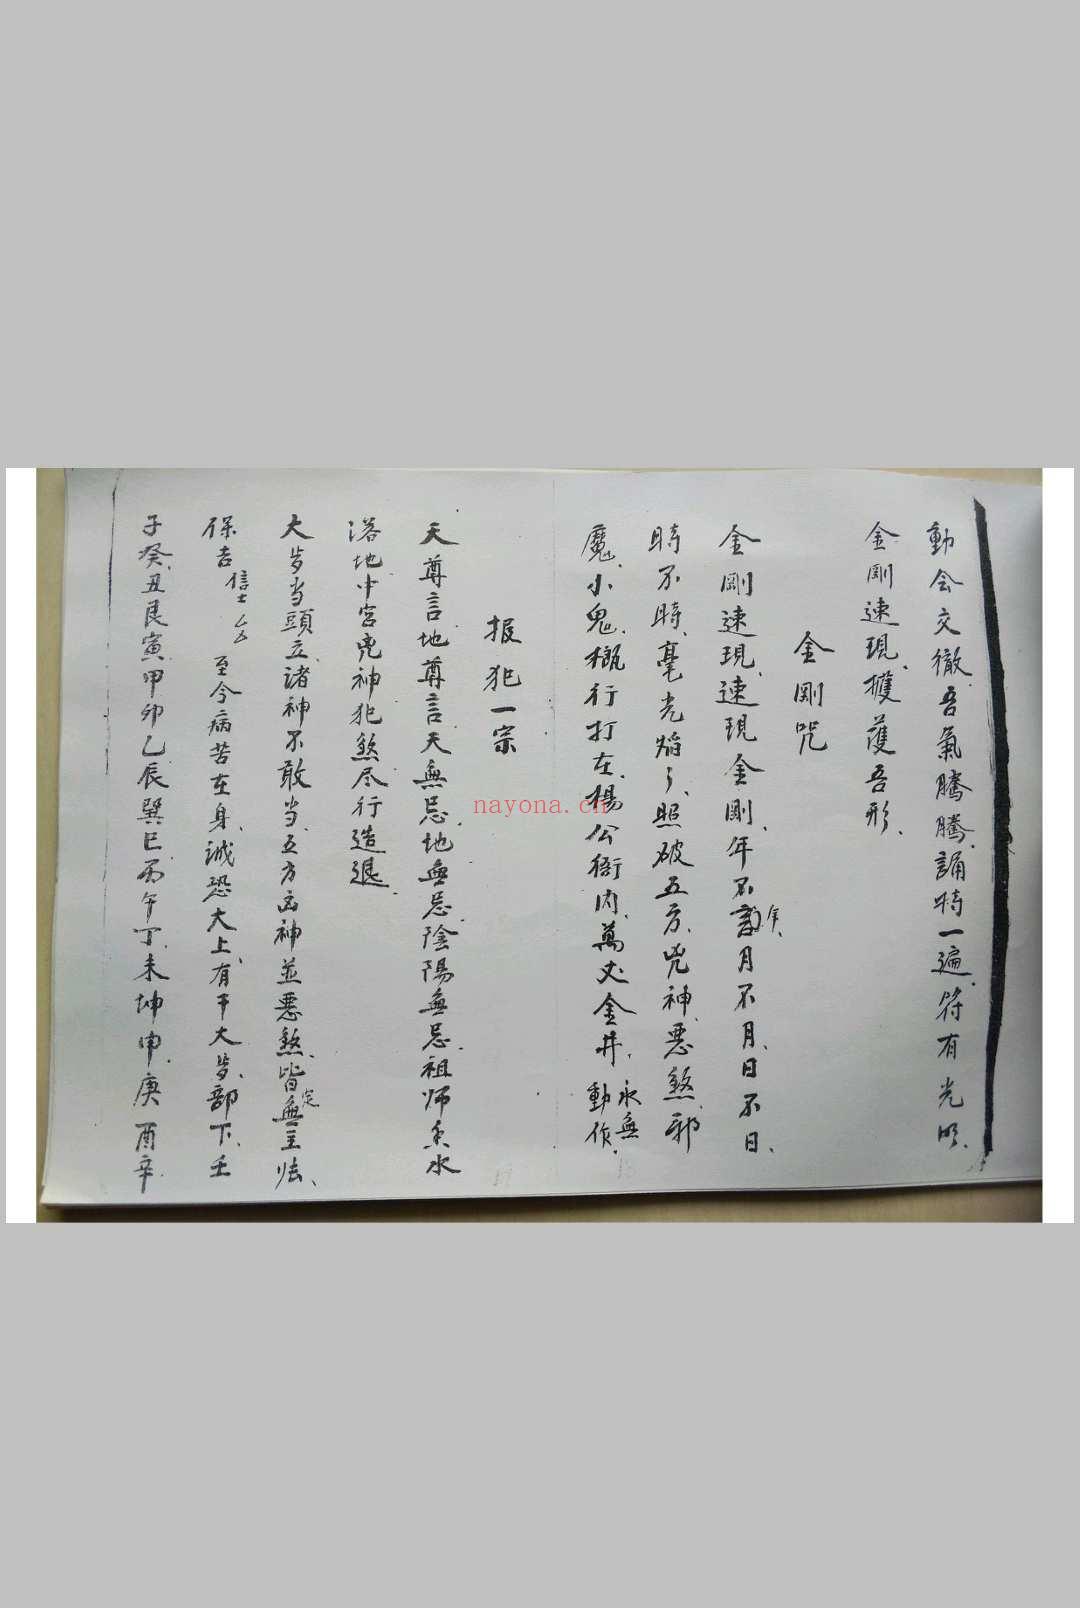 動会交徹、吾氣騰騰、誦特一遍、符有光明、
金剛速現、擭護吾形、
金剛咒
金剛速現、速現金剛、年不說年、月不月、日不日、
時不時、毫光焰々、照破五方、兇神惡煞、邪
魔、小鬼、概行打在、楊公衙内、萬丈金井、永無動作、
报犯一宗
天尊言、地尊言、天無忌、地無忌、陰陽無忌、祖师香水
落地中宮、兇神犯煞尽行造退、
大岁当頭立、諸神不敢当、五方凶神並惡煞、皆無定主法、
保吉信士厶厶 至今病苦在身、诚恐大上、有干大岁、部下、壬
子癸、丑艮寅、甲卯乙、辰巽巳、丙午丁、未坤申、庚酉辛
nayona.cn